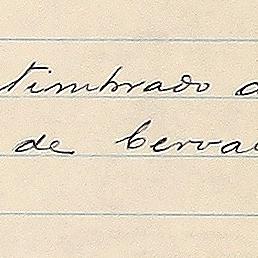 timbrado d
de Cerva